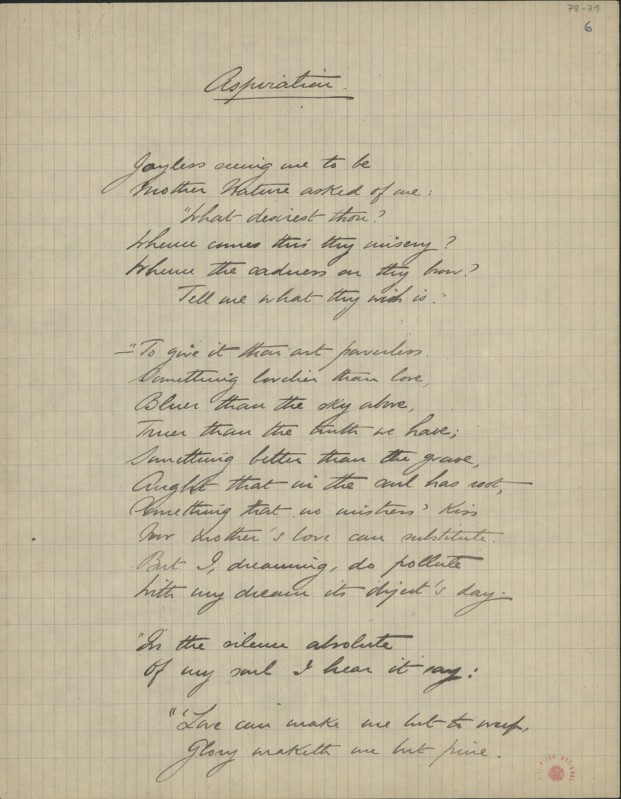 78-71
6
Aspiration.
Joyless seeing me to be
Mother Nature asked of me:
"What desirest thou?
Whence comes this thy misery?
Whence the sadness on thy brow?
Tell me what thy wish is."
— "To give it thou art powerless.
Something lovelier than love,
Bluer than the sky above,
Truer than the truth we have;
Something better than the grave,
Aught that in the soul has root,
Something that no mistress' kiss
Nor mother's love can substitute.
But I, dreaming, do pollute
With my dream its object's day.
"In the silence absolute
Of my soul I hear it say:
"'Love can make me but to weep,
Glory maketh me but pine.